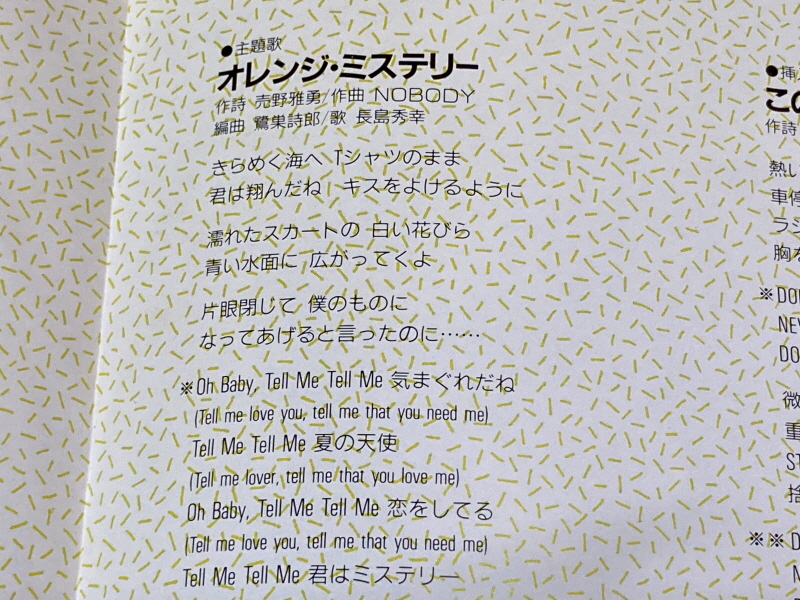 ●主題歌
オレンジ・ミステリー
作詩 売野雅勇/作曲 NOBODY
編曲 鷺巣詩郎/歌 長島秀幸
きらめく海へ Tシャツのまま
君は翔んだね キスをよけるように
濡れたスカートの 白い花びら
青い水面に 広がってくよ
片眼閉じて 僕のものに
なってあげると言ったのに……
※Oh Baby, Tell Me Tell Me 気まぐれだね
(Tell me love you, tell me that you need me)
Tell Me Tell Me 夏の天使
(Tell me lover, tell me that you love me)
Oh Baby, Tell Me Tell Me 恋をしてる
(Tell me love you, tell me that you need me)
Tell Me Tell Me 君はミステリー
●挿
この
作詩
熱い
車停
ラジ
胸を
※DO
NEV
DO
微
重
ST
捨
※※D